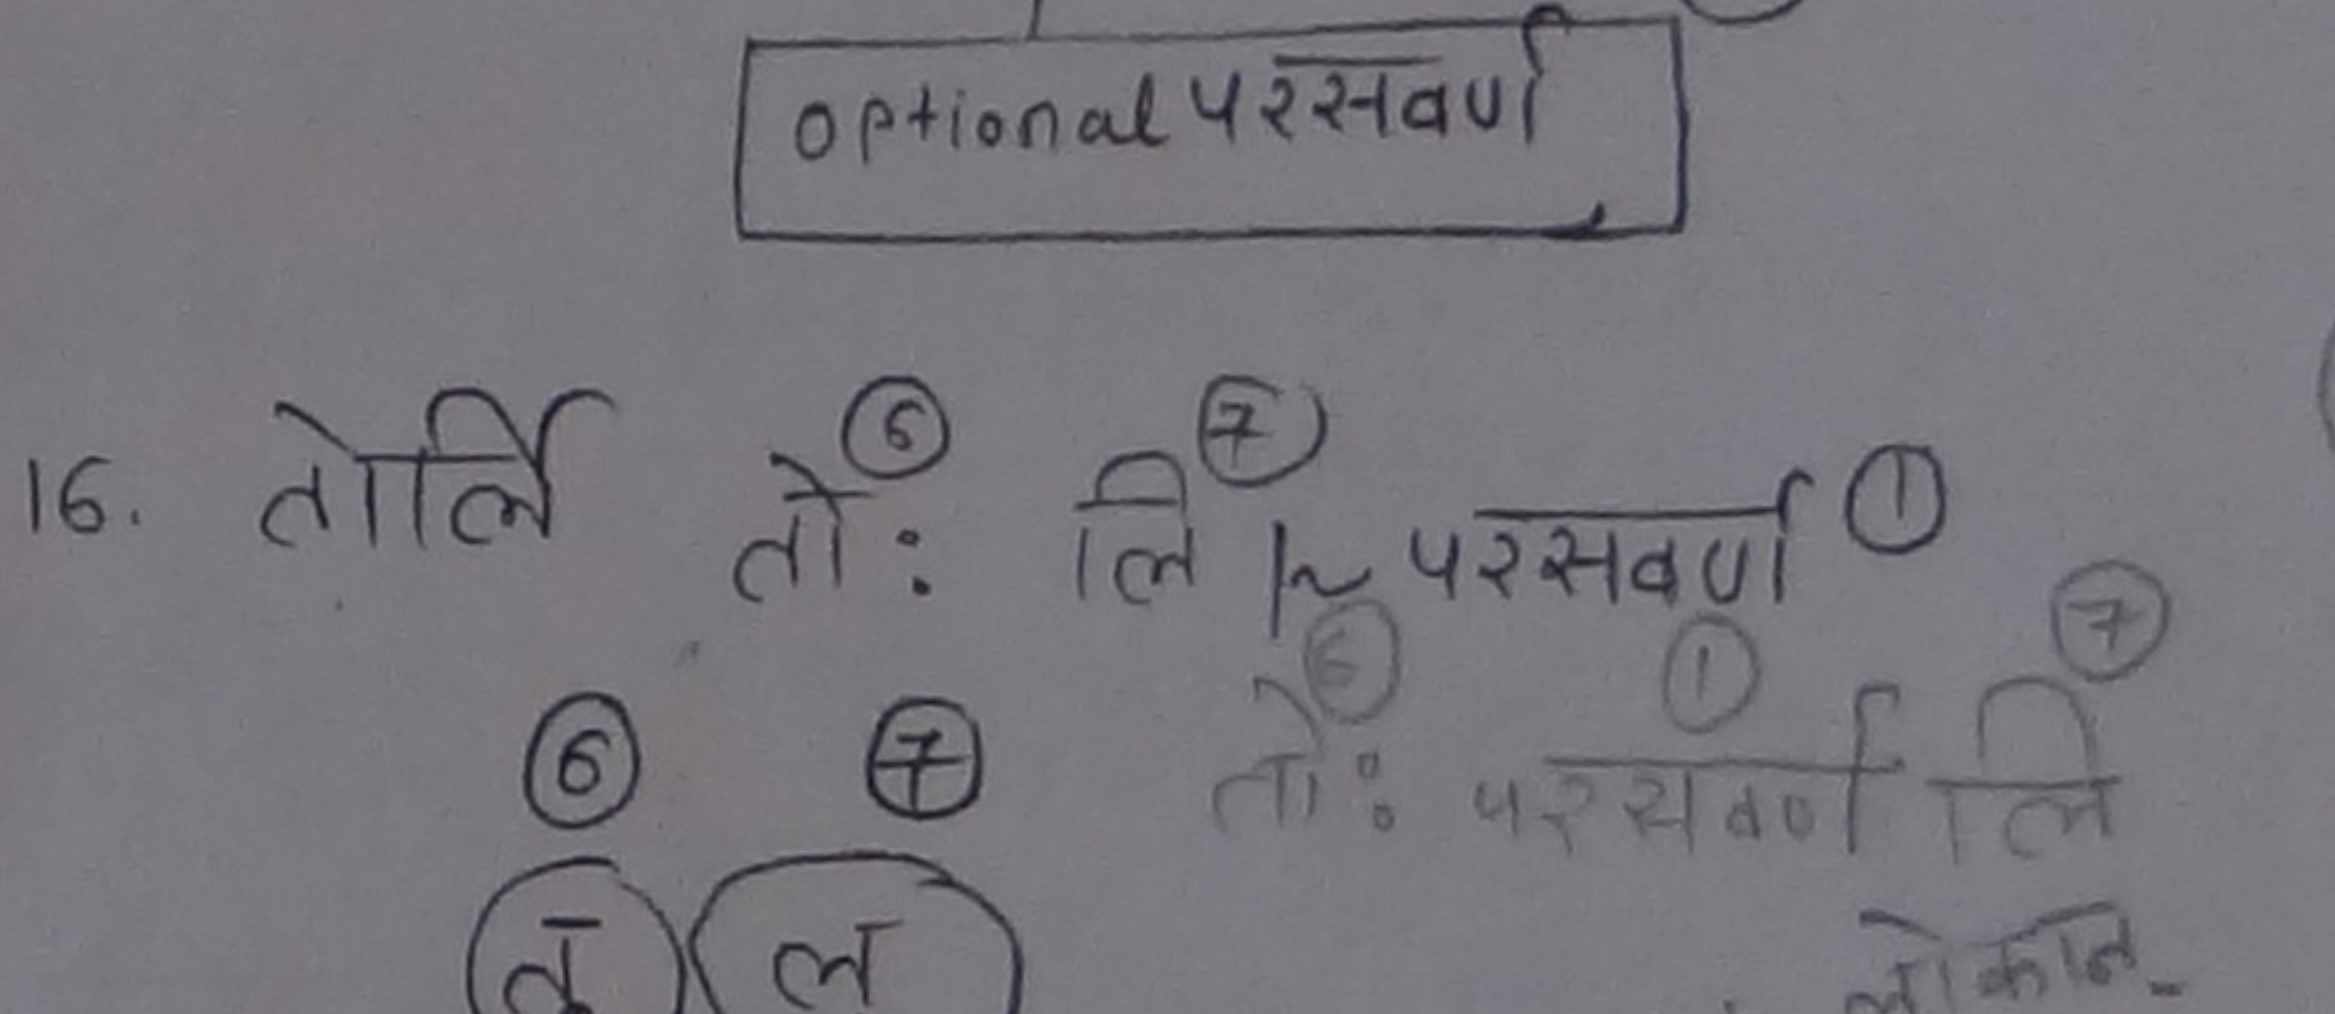 optional परसवर्ण
16. तोर्लि तोः ⑥ लि ⑦ ~ परसवर्ण ①
तोः ⑥ परसवर्ण ① लि ⑦
⑥ ⑦
तु ल
लोकान्